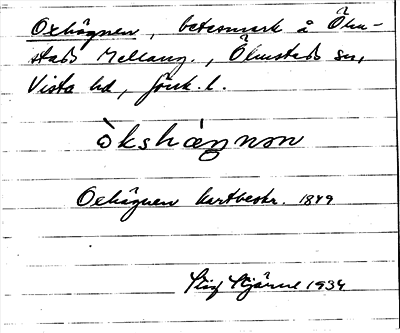 Oxhägnen, betesmark å Ölm-
stad Mellang., Ölmstad sn,
Vista hd, Jönk. l.
òkshàgnən
Oxhägnen kartbeskr. 1849
Stig Stjärne 1934